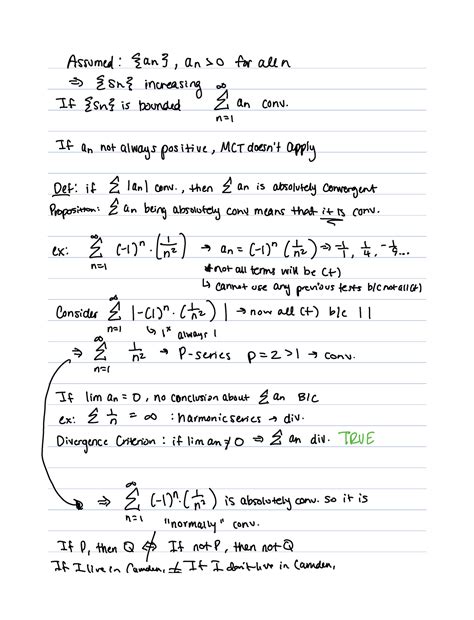 Assumed: {an}, an > 0 for all n
⇒ {Sn} increasing
If {Sn} is bounded ∞ Σ n=1 an conv.
If an not always positive, MCT doesn't apply
Def: if Σ |an| conv., then Σ an is absolutely convergent
Proposition: Σ an being absolutely conv means that it is conv.
ex: ∞ Σ n=1 (-1)^n · (1/n²) → an = (-1)^n (1/n²) ⇒ -1/1, 1/4, -1/9...
* not all terms will be (+)
↳ cannot use any previous tests b/c not all (+)
Consider ∞ Σ n=1 |-(1)^n · (1/n²)| → now all (+) b/c | |
↳ 1^x always 1
⇒ ∞ Σ n=1 1/n² → P-series p=2>1 → conv.
If lim an = 0, no conclusion about Σ an B/C
ex: Σ 1/n = ∞ : harmonic series → div.
Divergence Criterion: if lim an ≠ 0 ⇒ Σ an div. TRUE
⇒ ∞ Σ n=1 (-1)^n · (1/n²) is absolutely conv. so it is
"normally" conv.
If P, then Q ⇎ If not P, then not Q
If I live in Camden, ≠ If I don't live in Camden,